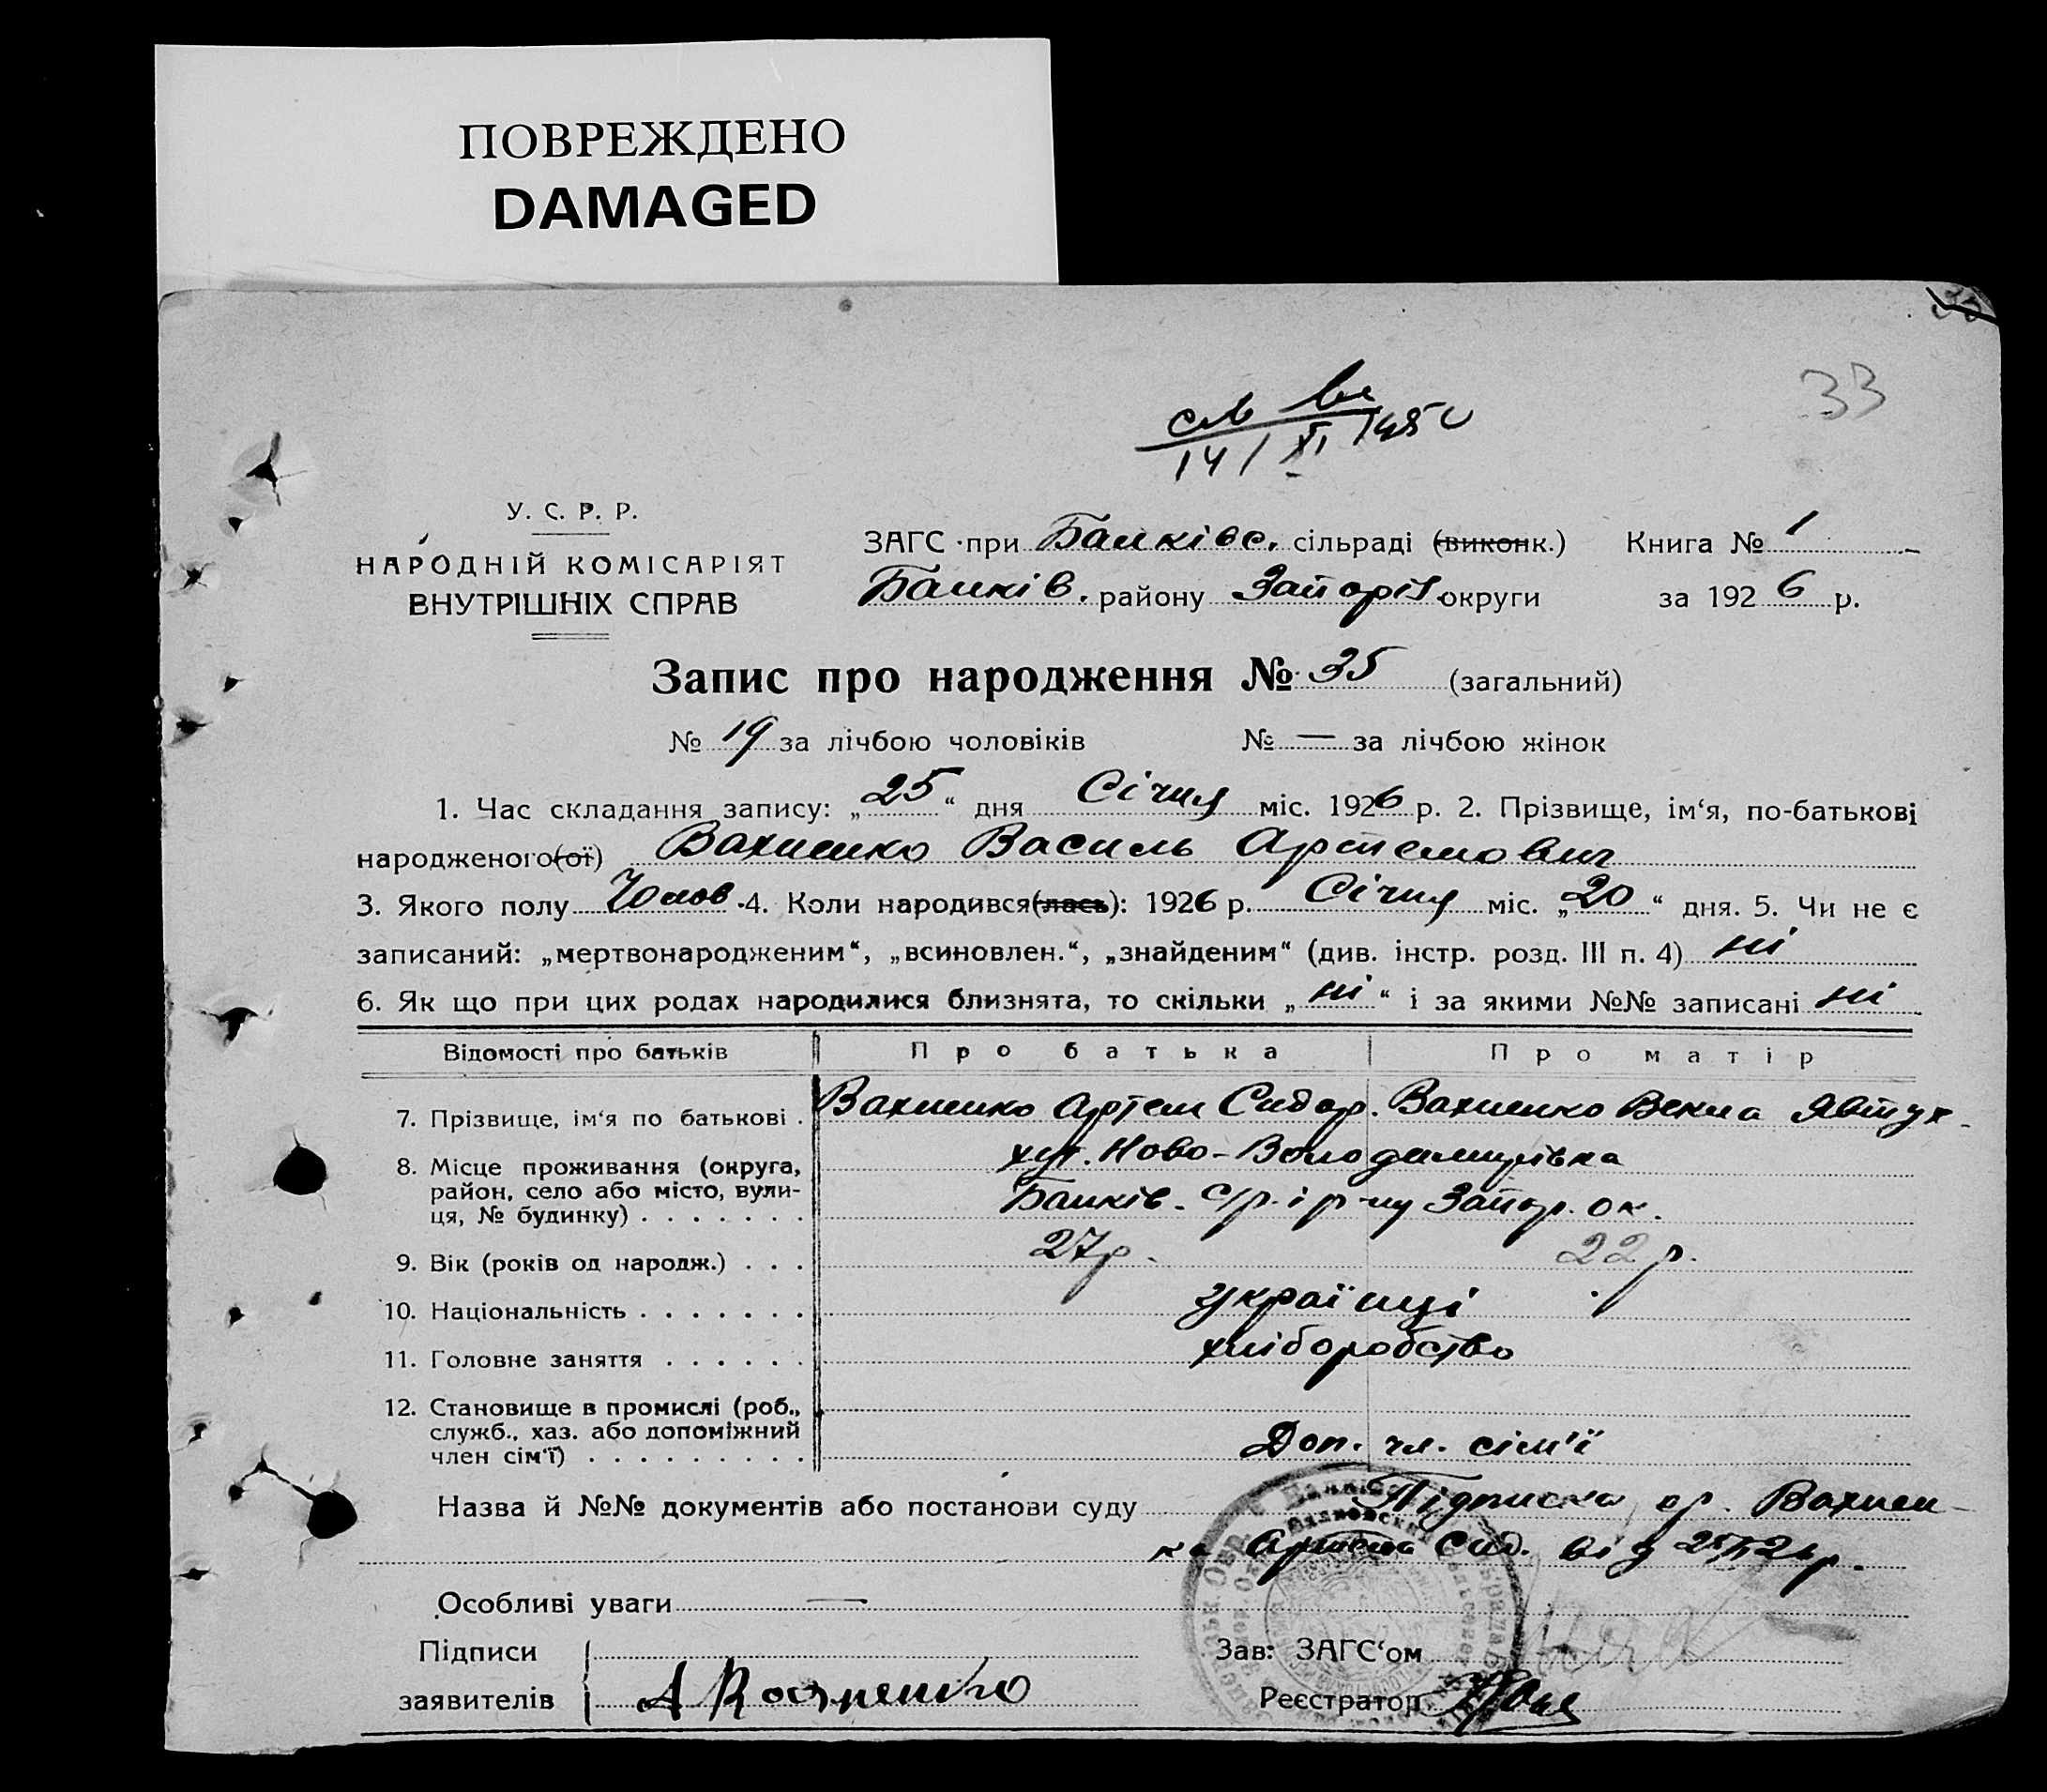 ПОВРЕЖДЕНО
DAMAGED
33
14/XI 1950
У. С. Р. Р.
НАРОДНІЙ КОМІСАРІЯТ
ВНУТРІШНІХ СПРАВ
ЗАГС при Балківс. сільраді (виконк.) Книга № 1
Балків. району Запоріз. округи за 1926 р.
Запис про народження № 35 (загальний)
№ 19 за лічбою чоловіків № — за лічбою жінок
1. Час складання запису: „25“ дня Січня міс. 1926 р. 2. Прізвище, ім‘я, по-батькові
народженого(ої) Вахненко Василь Артемович
3. Якого полу Чолов. 4. Коли народився(лась): 1926 р. Січня міс. „20“ дня. 5. Чи не є
записаний: „мертвонародженим“, „всиновлен.“, „знайденим“ (див. інстр. розд. III п. 4) ні
6. Як що при цих родах народилися близнята, то скільки „ні“ і за якими №№ записані ні
Відомості про батьків Про батька Про матір
7. Прізвище, ім‘я по батькові . Вахненко Артем Сидор. Вахненко Векла Явтух.
8. Місце проживання (округа, район, село або місто, вулиця, № будинку) . . . . . . . хут. Ново-Володимирівка
Балків. с/р. і р-ну Запор. ок.
9. Вік (років од народж.) . . . 27р. 22р.
10. Національність . . . . . . . українці
11. Головне заняття . . . . . . хліборобство
12. Становище в промислі (роб., служб., хаз. або допоміжний член сім‘ї) . . . . . . . . . Доп. чл. сім'ї
Назва й №№ документів або постанови суду Підписка гр. Вахнен-
ка Артема Сид. від 25/I 26р.
Особливі уваги —
Підписи
заявителів А Вахненко
Зав: ЗАГС‘ом
Реєстратор